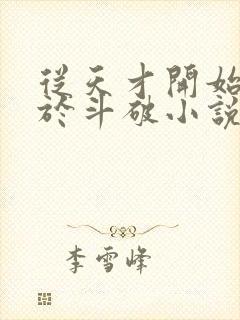 從天才開始
於斗破小說
李雪峰